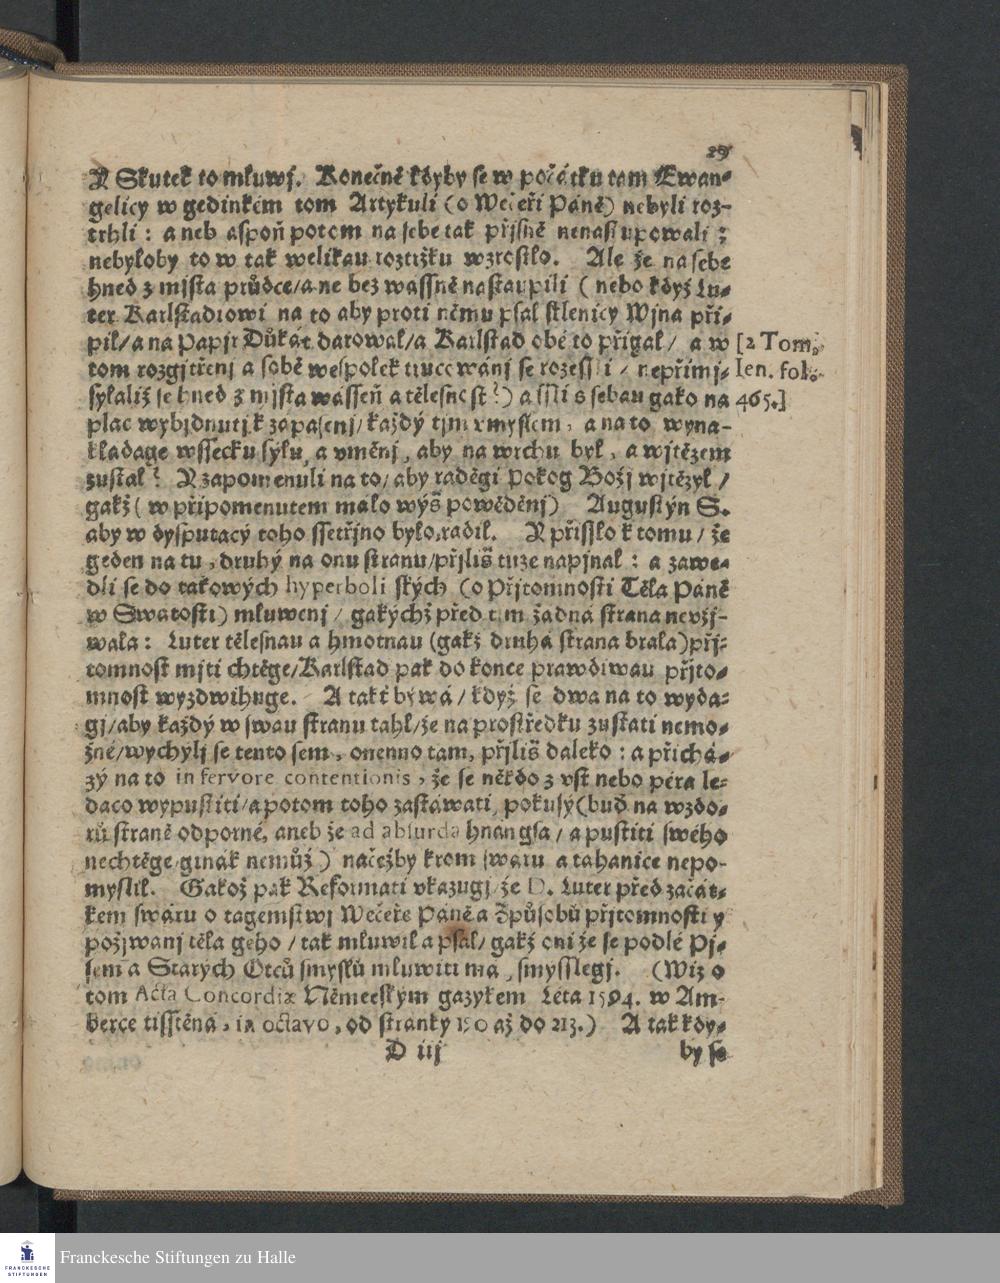 29
A Skutek to mluwj. Konečně kdyby se w počátku tam Ewan-
gelicy w gedinkém tom Artykuli (o Wečeři Páně) nebyli roz-
trhli : a neb aspoň potom na sebe tak přjsně nenastupowali ;
nebyloby to w tak welikau roztržku wzrostlo. Ale že na sebe
hned z mjsta průdce/a ne bez wassně nastaupili ( nebo když Lu-
ter Karlstadiowi na to aby proti němu psal sklenicy Wjna při-
pil/a na Papjr Důkát darowal/a Karlstad obé to přigal/ a w
tom rozgjtřenj a sobě wespolek
sylaliž se hned z mjsta wásseň a tělesnost?) a ssli s sebau gako na
plac wybjdnutj k zapasenj/každý tjm vmyslem, a na to wyna-
kládage wssecku sýlu, a vměnj, aby na wrchu byl, a wjtězem
zustal? A zapomenuli na to/aby raděgi Pokog Božj wjtězyl /
gakž ( w připomenutém málo wýš powěděnj) Augustýn S.
aby w dysputacý toho ssetřjno bylo, radil. A přisslo k tomu/ že
geden na tu, druhý na onu stranu/přjliš tuze napjnal : a zawe-
dli se do takowých hyperboli ských (o Přjtomnosti Těla Páně
w Swátosti) mluwenj / gakýchž před tjm žádná strana nevžj-
wala : Luter tělesnau a hmotnau (gakž druhá strana brala)přj-
tomnost mjti chtěge/Karlstad pak do konce prawdiwau přjto-
mnost wyzdwihuge. A takť býwá / když se dwa na to wydá-
gj/aby každý w swau stranu táhl/že na prostředku zustati nemo-
žné/wychýlj se tento sem, onenno tam, přjliš daleko : a přichá-
zý na to in fervore contentionis, že se někdo z vst nebo péra le-
daco wypustiti/a potom toho zastáwati, pokusý(buď na wzdo-
rů straně odporné, aneb že ad absurda hnán gsa / a pustiti swého
nechtěge ginák nemůž ) načežby krom swáru a tahanice nepo-
myslil. Gakož pak Reformati vkazugj že D. Luter před začát-
kem swáru o tagemstwj Wečeře Páně a Způsobů přjtomnosti y
požjwánj těla geho / tak mluwil a psal/ gakž oni že se podlé Pj-
sem a Starých Otců smyslů mluwiti má, smysslegj. (Wiz o
tom Acta Concordiæ Německým gazykem Léta 1594. w Am-
berce tisstěná, in octavo, od stránky 190 až do 213.) A tak kdy-
D iij
by se
[2 Tom.
Ien. fol.
465.]
FRANCKESCHE
STIFTUNGEN
Franckesche Stiftungen zu Halle